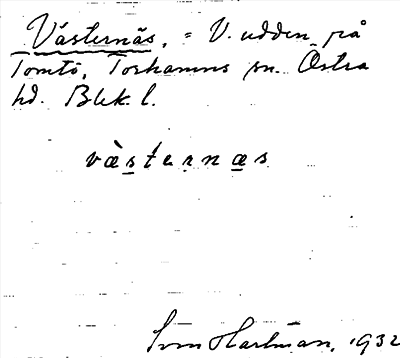 Västernäs, = V. udden på
Tomtö, Torhamns sn. Östra
hd. Blek. l.
vàsternæs
Sven Hartman, 1932